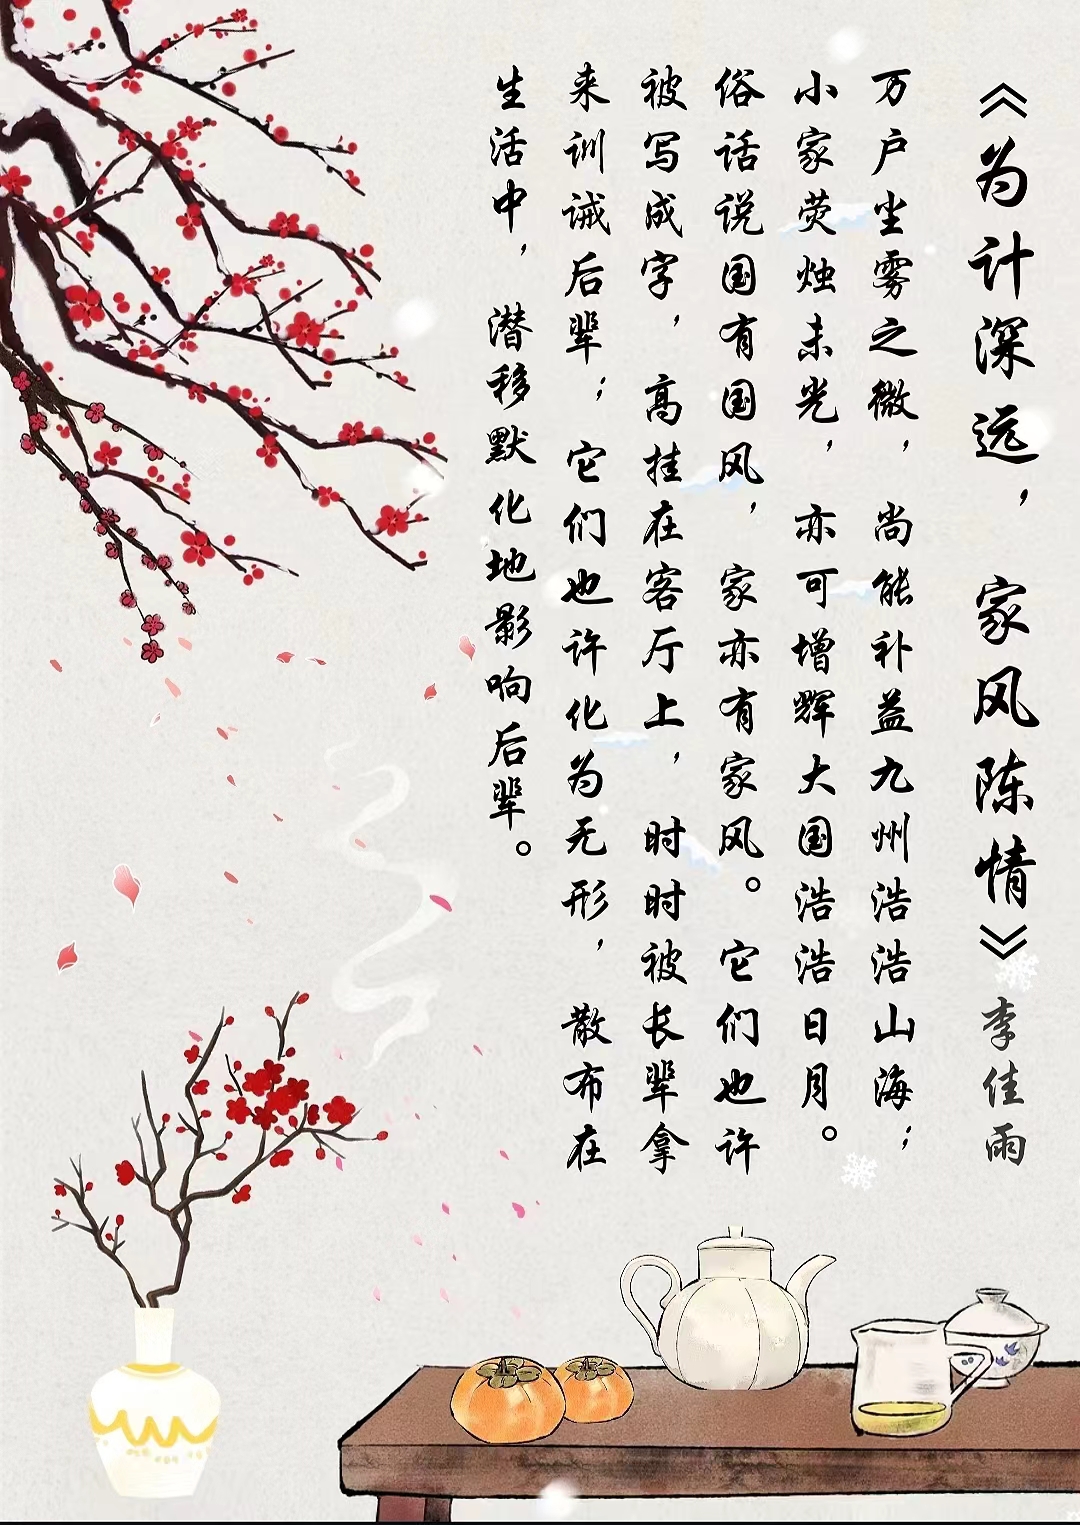 《为计深远，家风陈情》李佳雨
万户尘雾之微，尚能补益九州浩浩山海；
小家荧烛未光，亦可增辉大国浩浩日月。
俗话说国有国风，家亦有家风。它们也许
被写成字，高挂在客厅上，时时被长辈拿
来训诫后辈；它们也许化为无形，散布在
生活中，潜移默化地影响后辈。